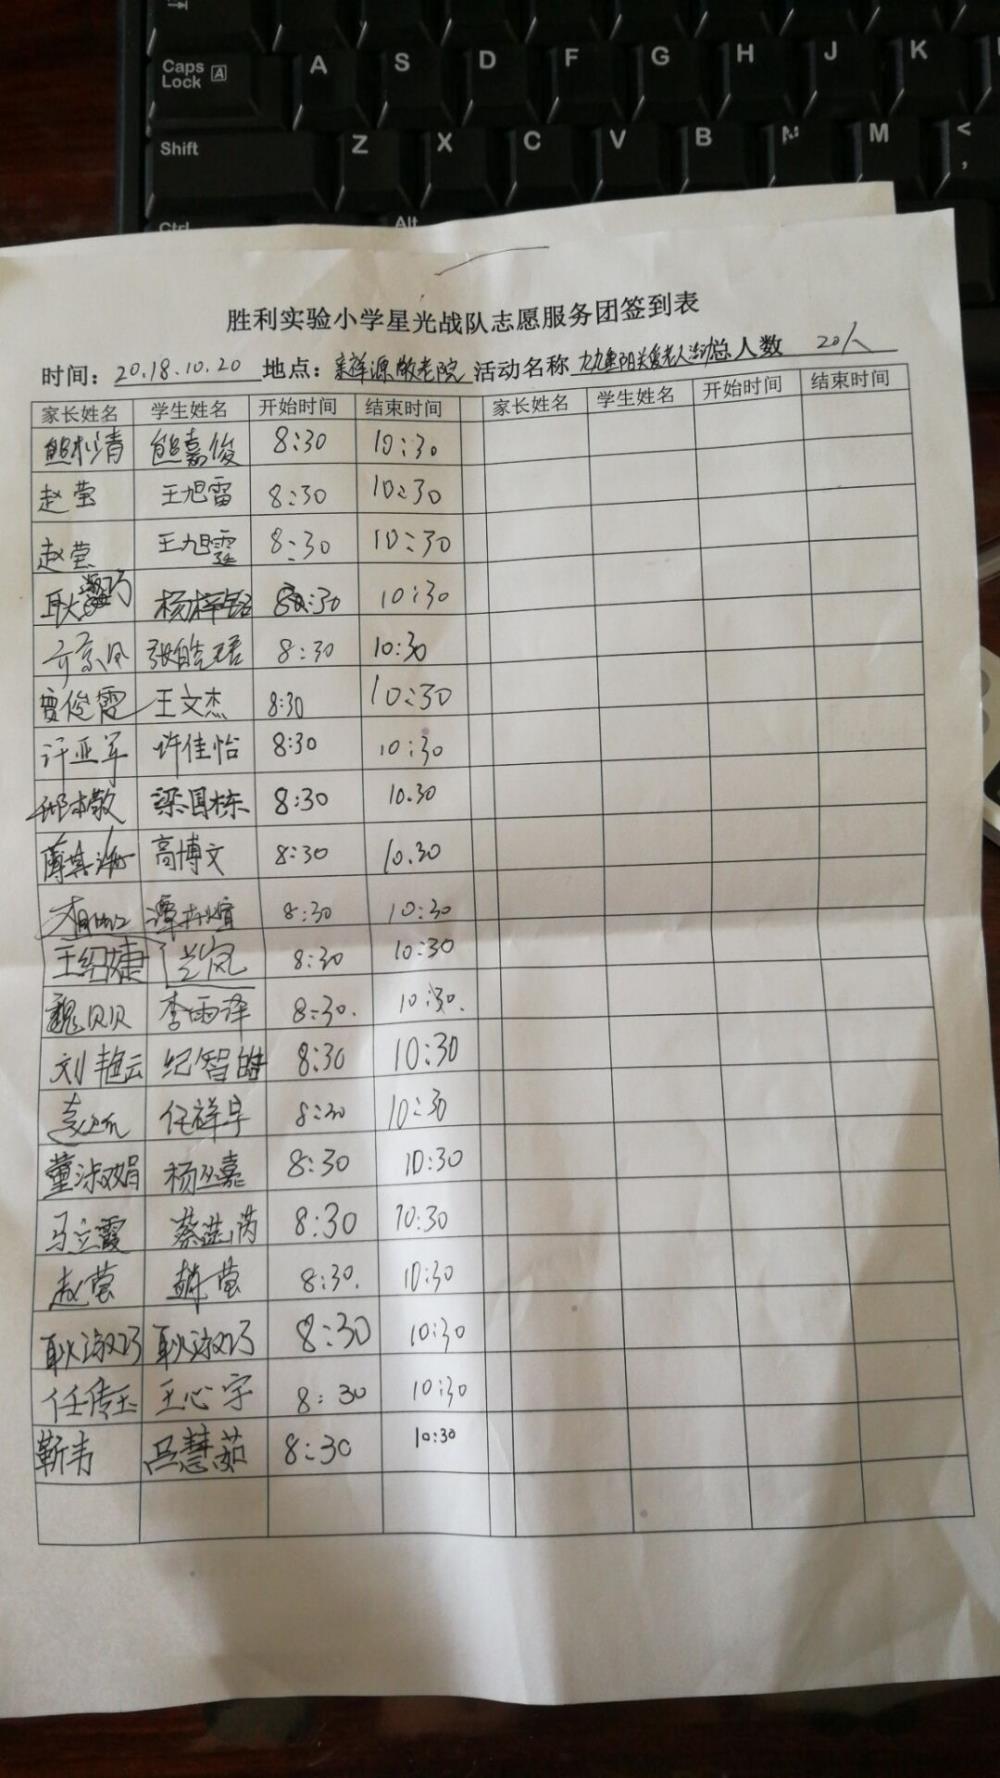 Caps Lock A A S D F G H J K
Shift Z X C V B N M < ,
Ctrl Alt
胜利实验小学星光战队志愿服务团签到表
时间：20.18.10.20 地点：祥源敬老院 活动名称 九九重阳关爱老人活动 总人数 20人
家长姓名 学生姓名 开始时间 结束时间 家长姓名 学生姓名 开始时间 结束时间
熊杉青 熊嘉俊 8:30 10:30
赵莹 王旭雷 8:30 10:30
赵莹 王旭霆 8:30 10:30
耿淑巧 杨梓铭 8:30 10:30
张皓珺 8:30 10:30
贾俊霞 王文杰 8:30 10:30
许亚军 许佳怡 8:30 10:30
邢本敬 梁国栋 8:30 10.30
高博文 8:30 10.30
8:30 10:30
王绍婕 兰岚 8:30 10:30
魏贝贝 李雨泽 8:30. 10:30.
刘艳云 纪智皓 8:30 10:30
任祥宇 8:30 10:30
董淑娟 杨丞嘉 8:30 10:30
马立霞 8:30 10:30
赵莹 赵莹 8:30. 10:30
耿淑巧 耿淑巧 8:30 10:30
任传玉 王心宇 8:30 10:30
靳韦 吕慧茹 8:30 10:30